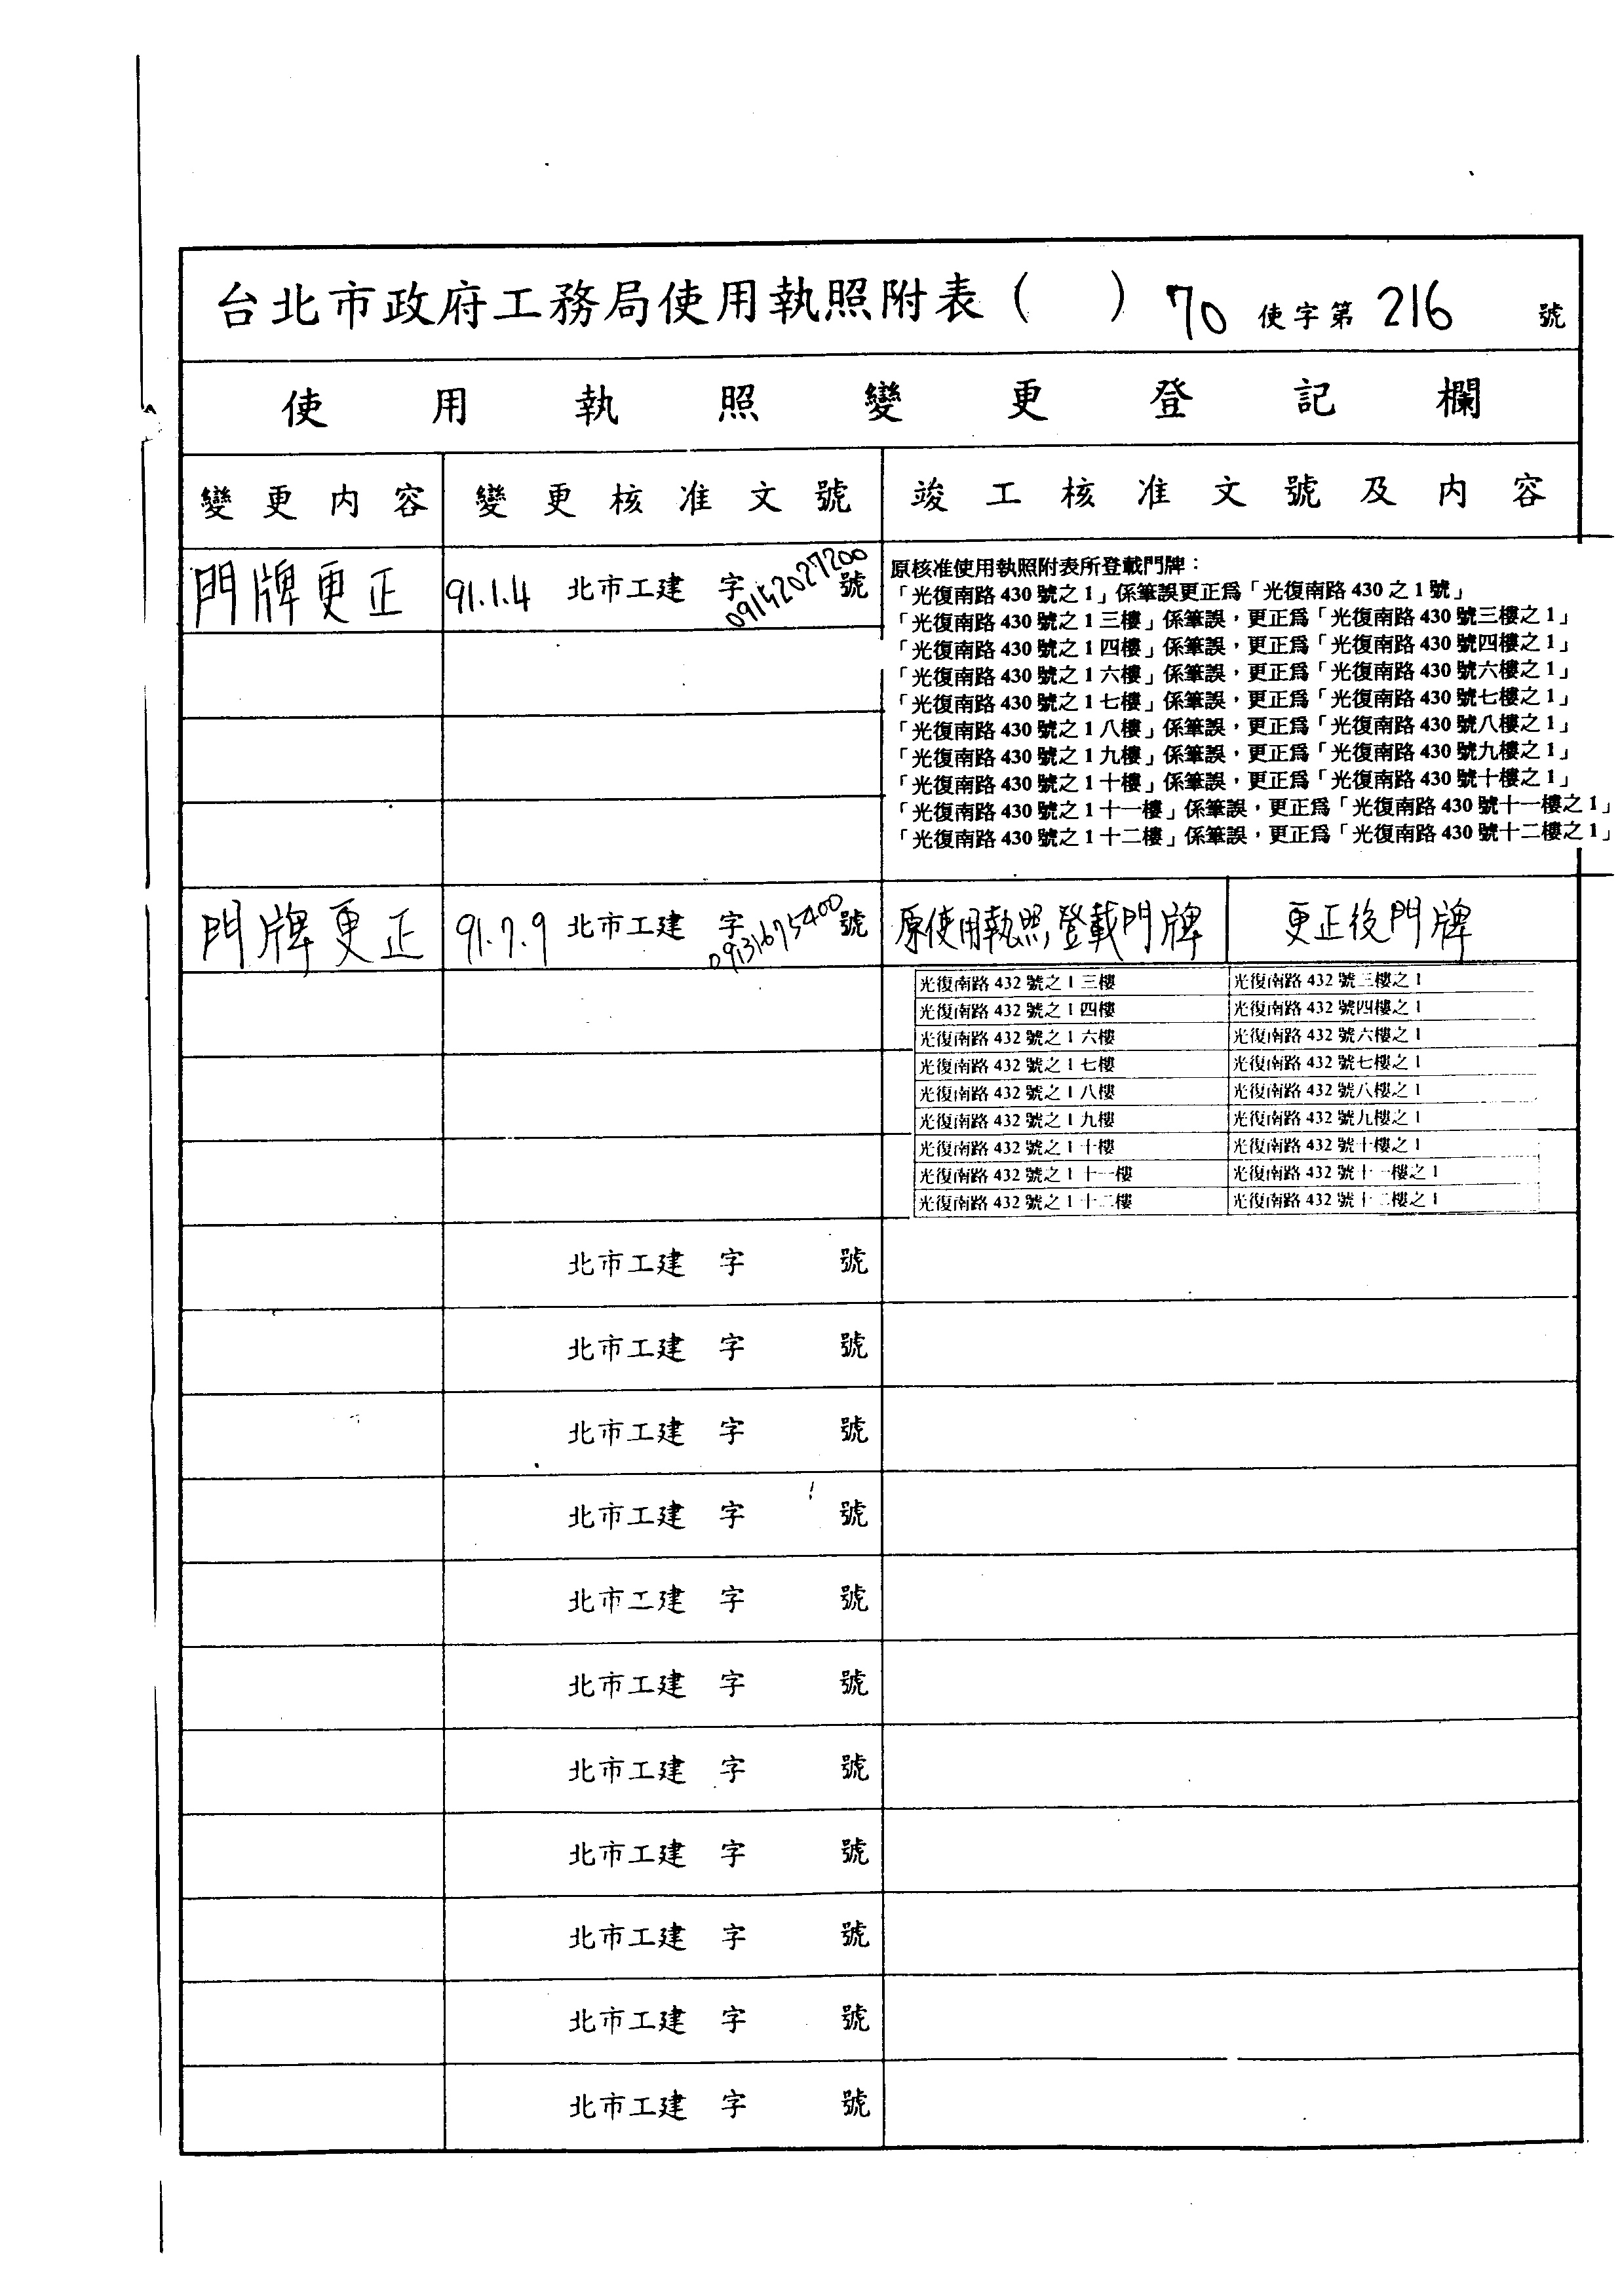 台北市政府工務局使用執照附表( ) 70 使字第 216 號
使用執照變更登記欄
變更內容 變更核准文號 竣工核准文號及內容
門牌更正 91.1.4 北市工建 字 09152027200 號
原核准使用執照附表所登載門牌：
「光復南路 430 號之 1」係筆誤更正爲「光復南路 430 之 1 號」
「光復南路 430 號之 1 三樓」係筆誤，更正爲「光復南路 430 號三樓之 1」
「光復南路 430 號之 1 四樓」係筆誤，更正爲「光復南路 430 號四樓之 1」
「光復南路 430 號之 1 六樓」係筆誤，更正爲「光復南路 430 號六樓之 1」
「光復南路 430 號之 1 七樓」係筆誤，更正爲「光復南路 430 號七樓之 1」
「光復南路 430 號之 1 八樓」係筆誤，更正爲「光復南路 430 號八樓之 1」
「光復南路 430 號之 1 九樓」係筆誤，更正爲「光復南路 430 號九樓之 1」
「光復南路 430 號之 1 十樓」係筆誤，更正爲「光復南路 430 號十樓之 1」
「光復南路 430 號之 1 十一樓」係筆誤，更正爲「光復南路 430 號十一樓之 1」
「光復南路 430 號之 1 十二樓」係筆誤，更正爲「光復南路 430 號十二樓之 1」
門牌更正 91.7.9 北市工建 字 09131675400 號 原使用執照登載門牌 更正後門牌
光復南路 432 號之 1 三樓 光復南路 432 號三樓之 1
光復南路 432 號之 1 四樓 光復南路 432 號四樓之 1
光復南路 432 號之 1 六樓 光復南路 432 號六樓之 1
光復南路 432 號之 1 七樓 光復南路 432 號七樓之 1
光復南路 432 號之 1 八樓 光復南路 432 號八樓之 1
光復南路 432 號之 1 九樓 光復南路 432 號九樓之 1
光復南路 432 號之 1 十樓 光復南路 432 號十樓之 1
光復南路 432 號之 1 十一樓 光復南路 432 號十一樓之 1
光復南路 432 號之 1 十二樓 光復南路 432 號十二樓之 1
北市工建 字 號
北市工建 字 號
北市工建 字 號
北市工建 字 號
北市工建 字 號
北市工建 字 號
北市工建 字 號
北市工建 字 號
北市工建 字 號
北市工建 字 號
北市工建 字 號